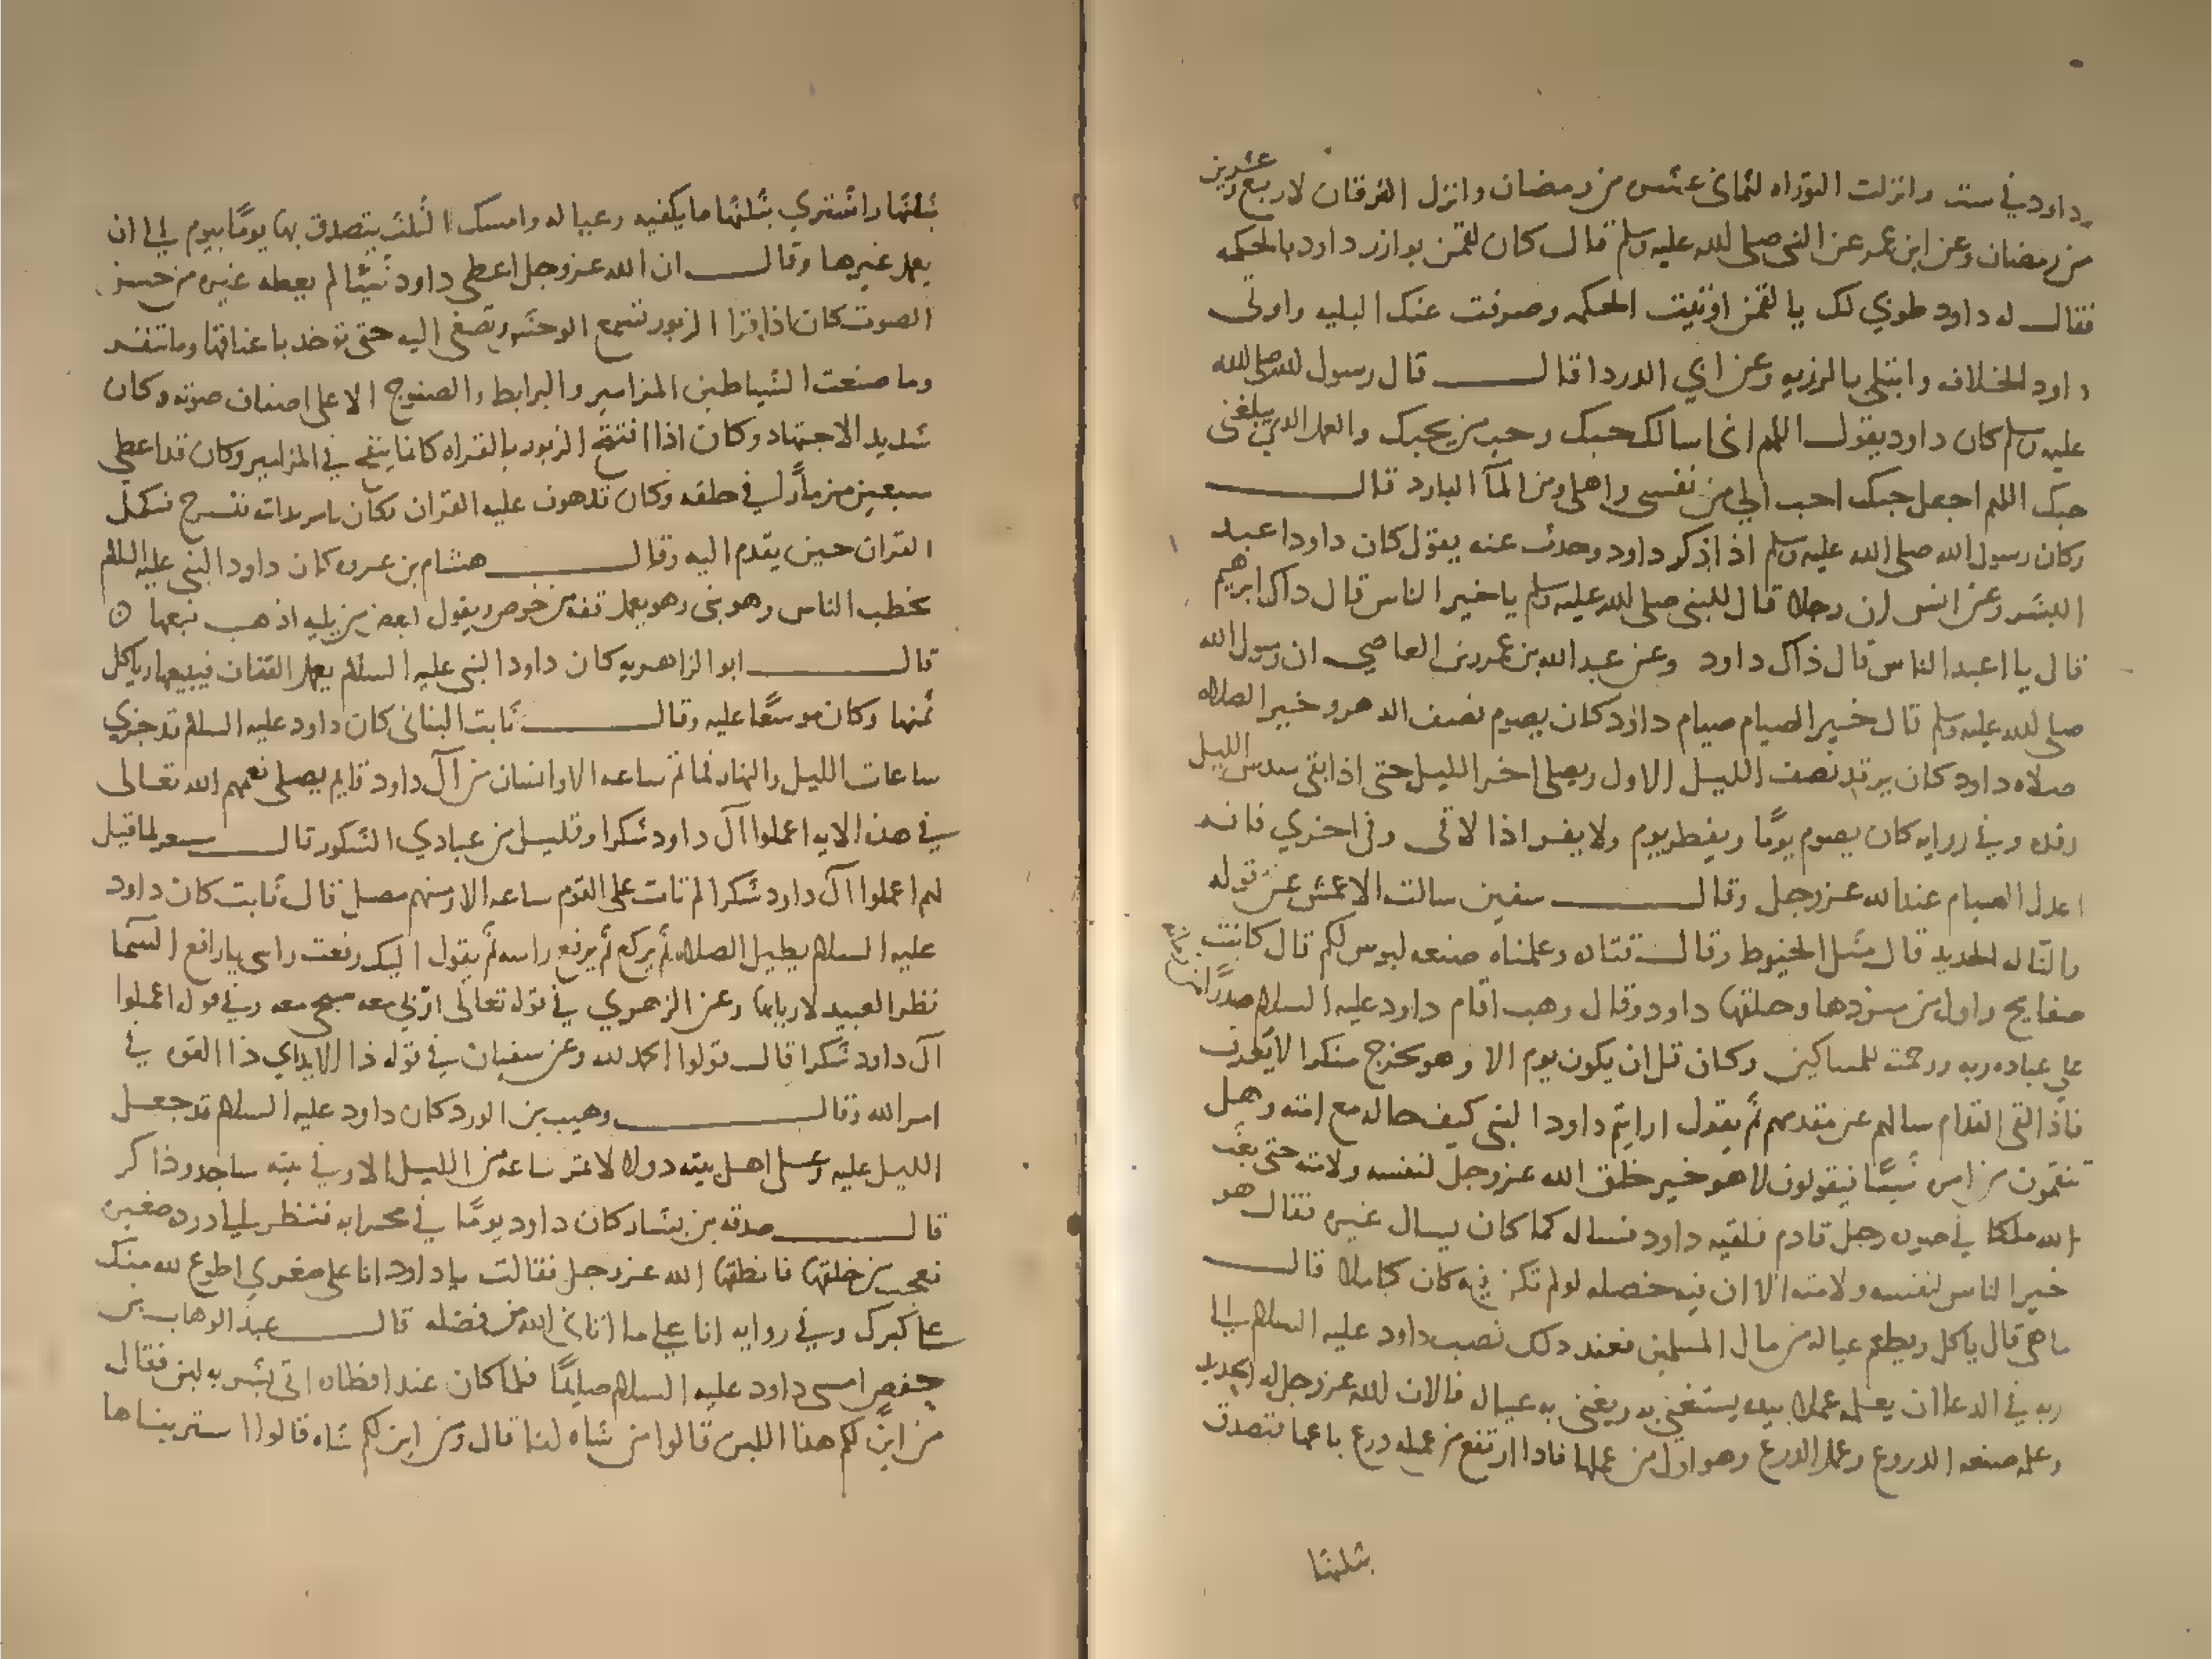 داود في ست وانزلت التوراه لثماني عشر من رمضان وانزل الفرقان لاربع وعشرين
من رمضان وعن ابن عمر عن النبي صلى الله عليه وسلم قال كان لقمن يوازر داود بالحكمه
فقال له داود طوبي لك يا لقمن اوتيت الحكمه وصرفت عنك البليه واوتي
داود الخلافه وابتلي بالرزيه وعن ابي الدردا قال قال رسول الله صلى الله
عليه وسلم كان داود يقول اللهم اني اسالك حبك وحب من يحبك والعمل الذي يبلغني
حبك اللهم اجعل حبك احب الي من نفسي واهلي ومن المآ البارد قال
وكان رسول الله صلى الله عليه وسلم اذا ذكر داود وحدث عنه يقول كان داود اعبد
البشر وعن انس ان رجلا قال للنبي صلى الله عليه وسلم يا خير الناس قال ذاك ابرهيم
قال يا اعبد الناس قال ذاك داود وعن عبد الله بن عمرو بن العاصي ان رسول الله
صلى الله عليه وسلم قال خير الصيام صيام داود كان يصوم نصف الدهر وخير الصلاه
صلاه داود كان يرقد نصف الليل الاول ويصلي اخر الليل حتى اذا بقي سدس الليل
رقده وفي روايه كان يصوم يومًا ويفطر يوم ولا يفر اذا لاقى وفي اخري فانه
اعدل الصيام عند الله عز وجل وقال سفين سالت الاعمش عن قوله
والنّا له الحديد قال مثل الخيوط وقال قتاده وعلمناه صنعه لبوس لكم قال كانت
صفايح واول من سردها وحلقها داود وقال وهب اقام داود عليه السلام صدرًا من زمانه
على عباده ربه ورحمه للمساكين وكان قل ان يكون يوم الا وهو يخرج متنكرا لا يعرف
فاذا لقي القدام سالهم عن مقدمهم ثم يقول ارايتم داود النبي كيف حاله مع امته وهل
تنقمون من امره شيئًا فيقولون لا هو خير خلق الله عز وجل لنفسه ولامته حتى بعث
الله ملكا في صوره رجل قادم فلقيه داود فساله كما كان يسال غيره فقال هو
خير الناس لنفسه ولامته الا ان فيه خصله لو لم تكن فيه كان كاملا قال
ما هي قال ياكل ويطعم عياله من مال المسلمين فعند ذلك نصب داود عليه السلام الى
ربه في الدعا ان يعلمه عملا بيده يستغني به ويغني به عياله فالان الله عز وجل له الحديد
وعلمه صنعه الدروع وعمل الدرع وهو اول من عملها فاذا ارتفع من عمله درع باعها فتصدق
بثلثها
بثلثها واشتري بثلثها ما يكفيه وعياله وامسك الثلث يتصدق بها يومًا بيوم الى ان
يعمل غيرها وقال ان الله عز وجل اعطي داود شيئا لم يعطه غيره من حسن
الصوت كان اذا قرا الزبور تسمع الوحش وتصغي اليه حتى توخذ باعناقها وما تنفر
وما صنعت الشياطين المزامير والبرابط والصنوج الا على اصناف صوته وكان
شديد الاجتهاد وكان اذا افتتح الزبور بالقراه كانما ينفخ في المزامير وكان قد اعطي
سبعين مزمارًا في حلقه وكان قد هون عليه القران فكان يامر بدابته تسرج فيكمل
القران حين يقدم اليه وقال هشام بن عروه كان داود النبي عليه السلام
يخطب الناس وهو نبي وهو يعمل قفه من خوص ويقول لبعض من يليه اذهب فبعها
قال ابو الزاهريه كان داود النبي عليه السلام يعمل القفاف فيبيعها وياكل
ثمنها وكان موسعًا عليه وقال ثابت البناني كان داود عليه السلام قد جزي
ساعات الليل والنهار فما من ساعه الا وانسان من آل داود قايم يصلي فعمهم الله تعالى
في هذه الايه اعملوا آل داود شكرا وقليل من عبادي الشكور قال مسعر لما قيل
لهم اعملوا آل داود شكرا لم تات على القوم ساعه الا ومنهم مصل قال ثابت كان داود
عليه السلام يطيل الصلاه ثم يركع ثم يرفع راسه ثم يقول اليك رفعت راسي يا رافع السما
نظر العبيد لاربابها وعن الزهري في قوله تعالى اوّبي معه سبحي معه وفي قوله اعملوا
آل داود شكرا قال قولوا الحمد لله وعن سفيان في قوله ذا الايدي ذا القوه في
امر الله وقال وهيب بن الورد كان داود عليه السلام قد جعل
الليل عليه وعلى اهل بيته دولا لا تمر ساعه من الليل الا وفي بيته ساجد وذاكر
قال صدقه بن يسار كان داود يومًا في محرابه فنظر الى دوده صغيره
فعجب من خلقها فانطقها الله عز وجل فقالت يا داود انا على صغري اطوع لله منك
على كبرك وفي روايه انا على ما اتاني الله من فضله قال عبد الوهاب بن
جعفر امسى داود عليه السلام صايمًا فلما كان عند افطاره اتي بشربه لبن فقال
من اين لكم هذا اللبن قالوا من شاه لنا قال ومن اين لكم شاه قالوا اشتريناها